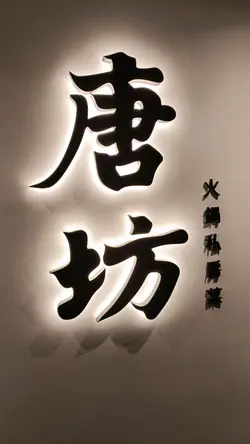 唐坊
火鍋私房菜